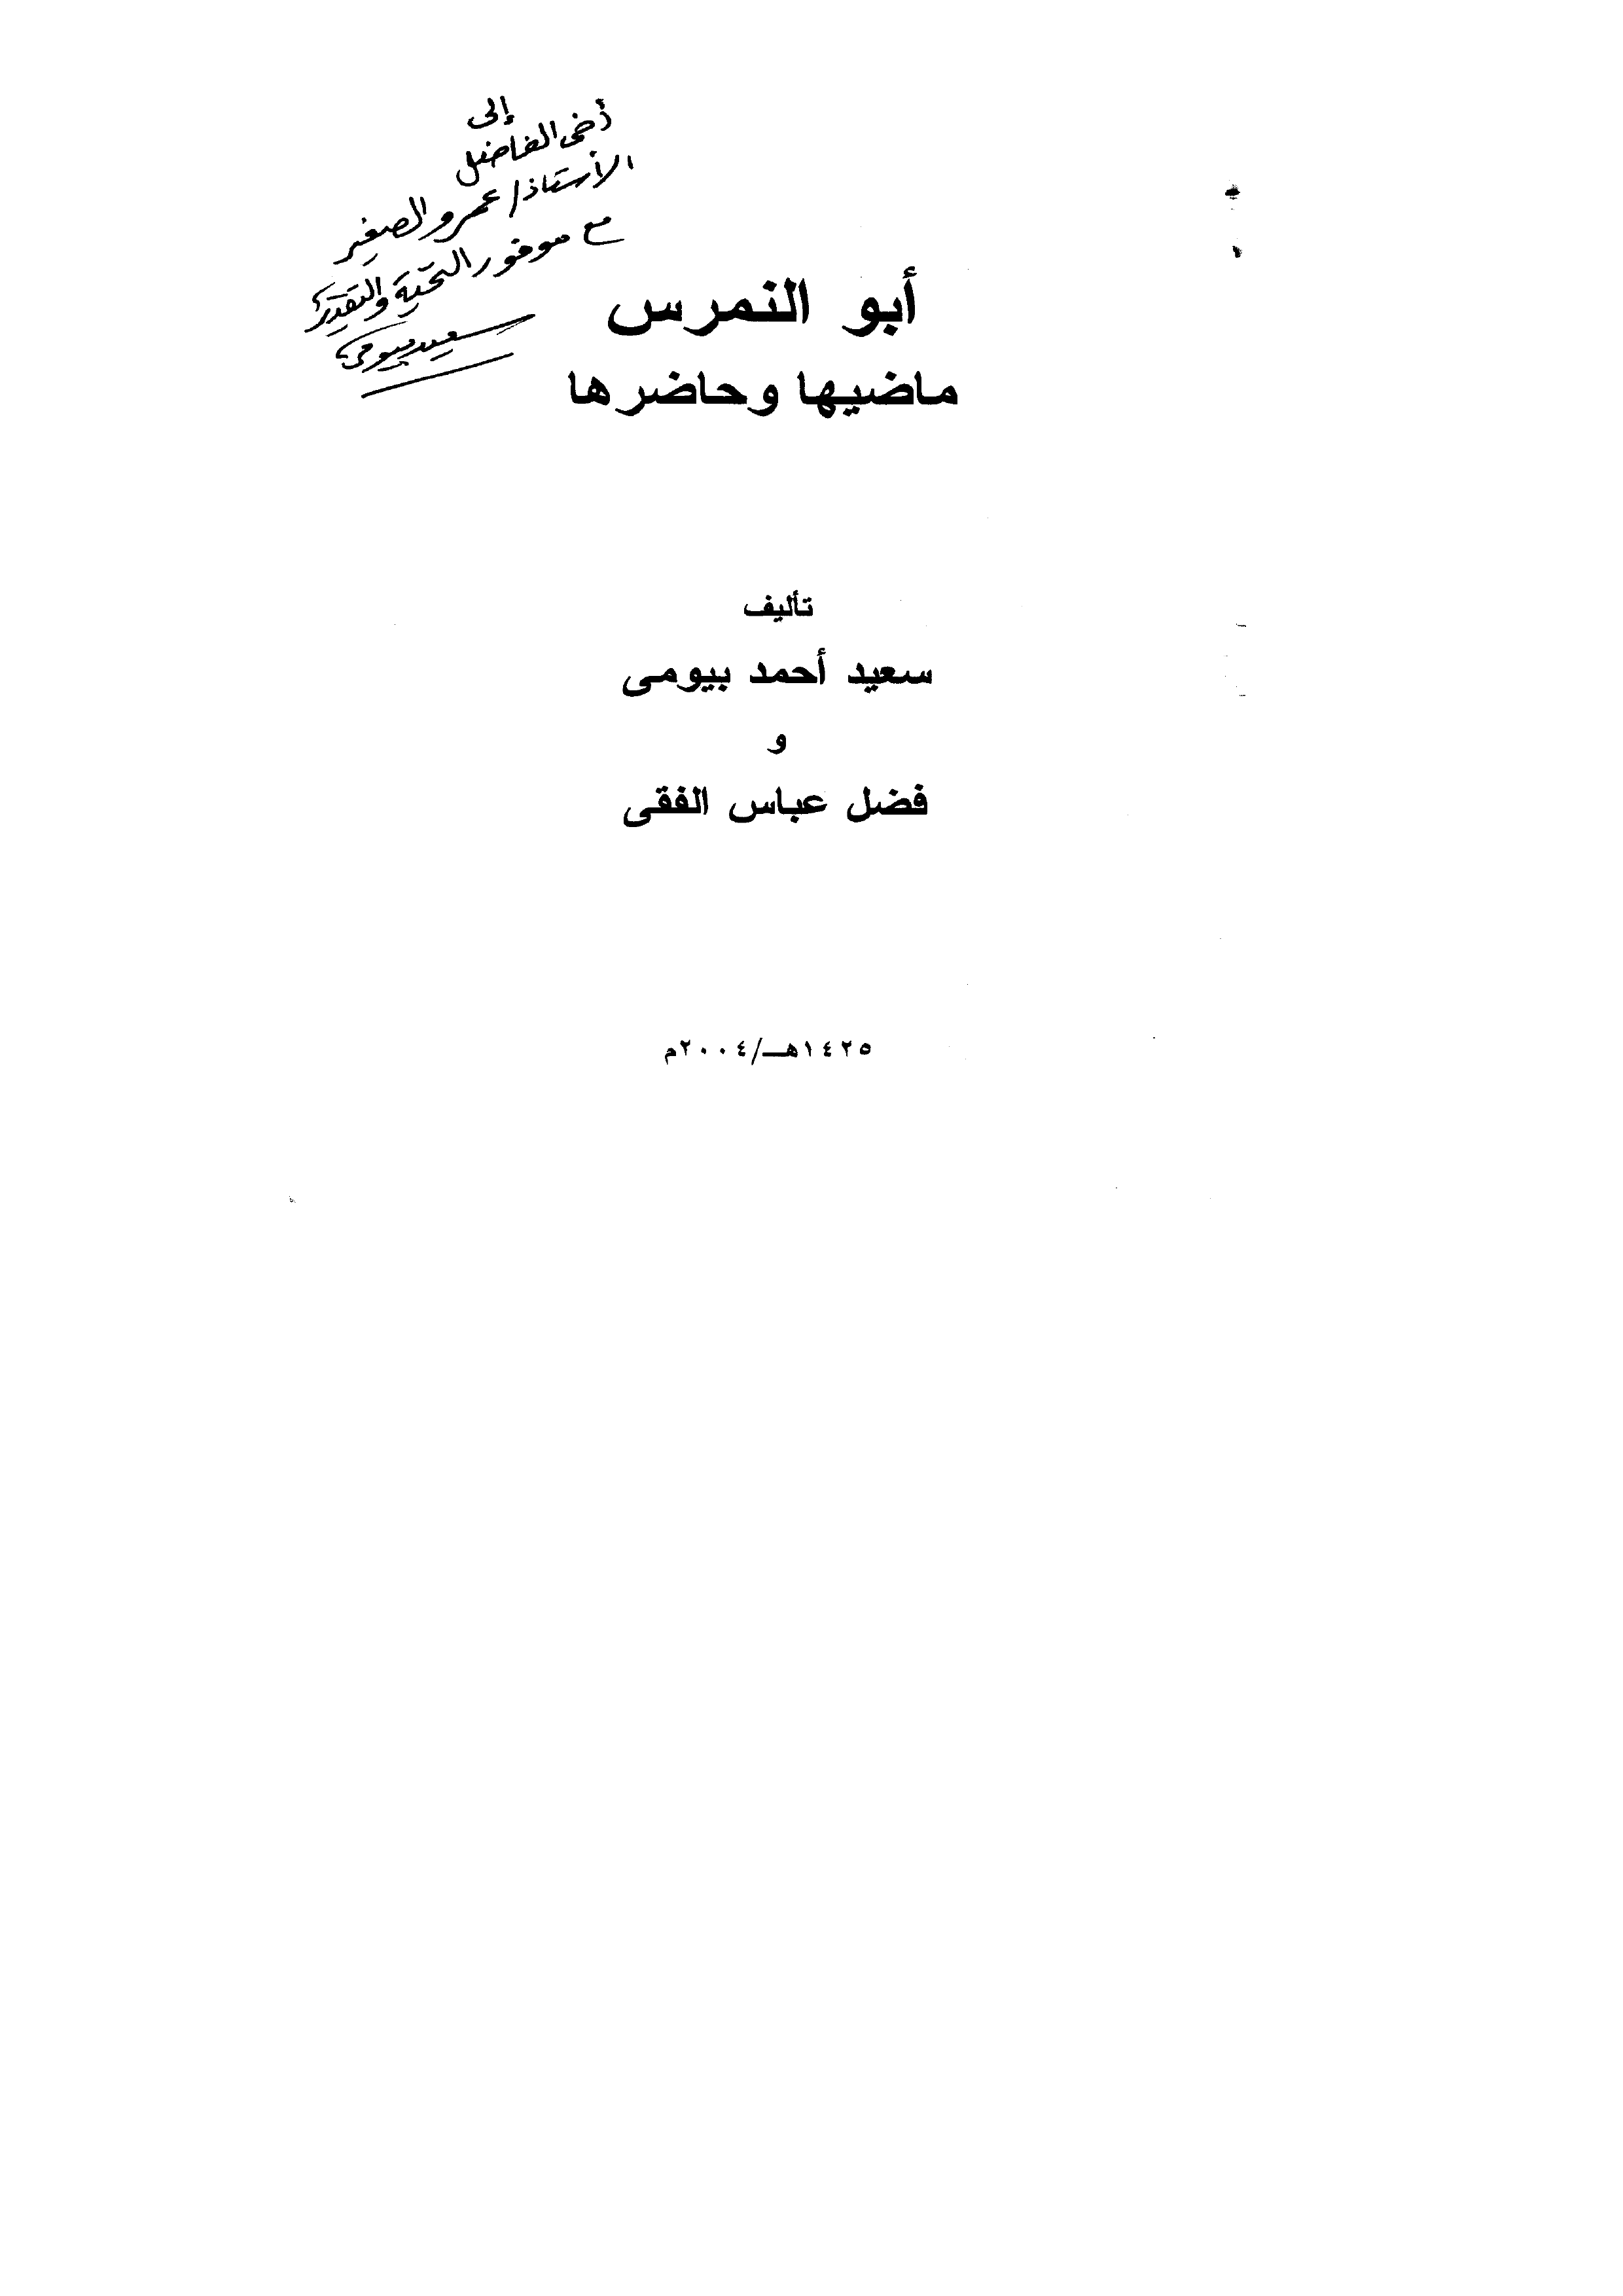 إلى
أخى الفاضل
الأستاذ/ عمرو الصغير
مع موفور التحية والتقدير
سعيد بيومى
أبو النمرس
ماضيها وحاضرها
تأليف
سعيد أحمد بيومى
و
فضل عباس الفقى
١٤٢٥هـ/٢٠٠٤م